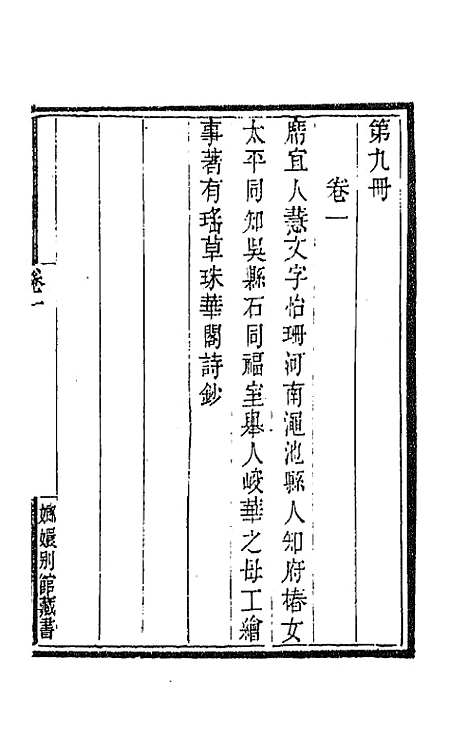 第九冊
卷一
席宜人慧文字怡珊河南澠池縣人知府椿女
太平同知吳縣石同福室舉人峻華之母工繪
事著有瑤草珠華閣詩鈔
卷一
嫏嬛別館藏書